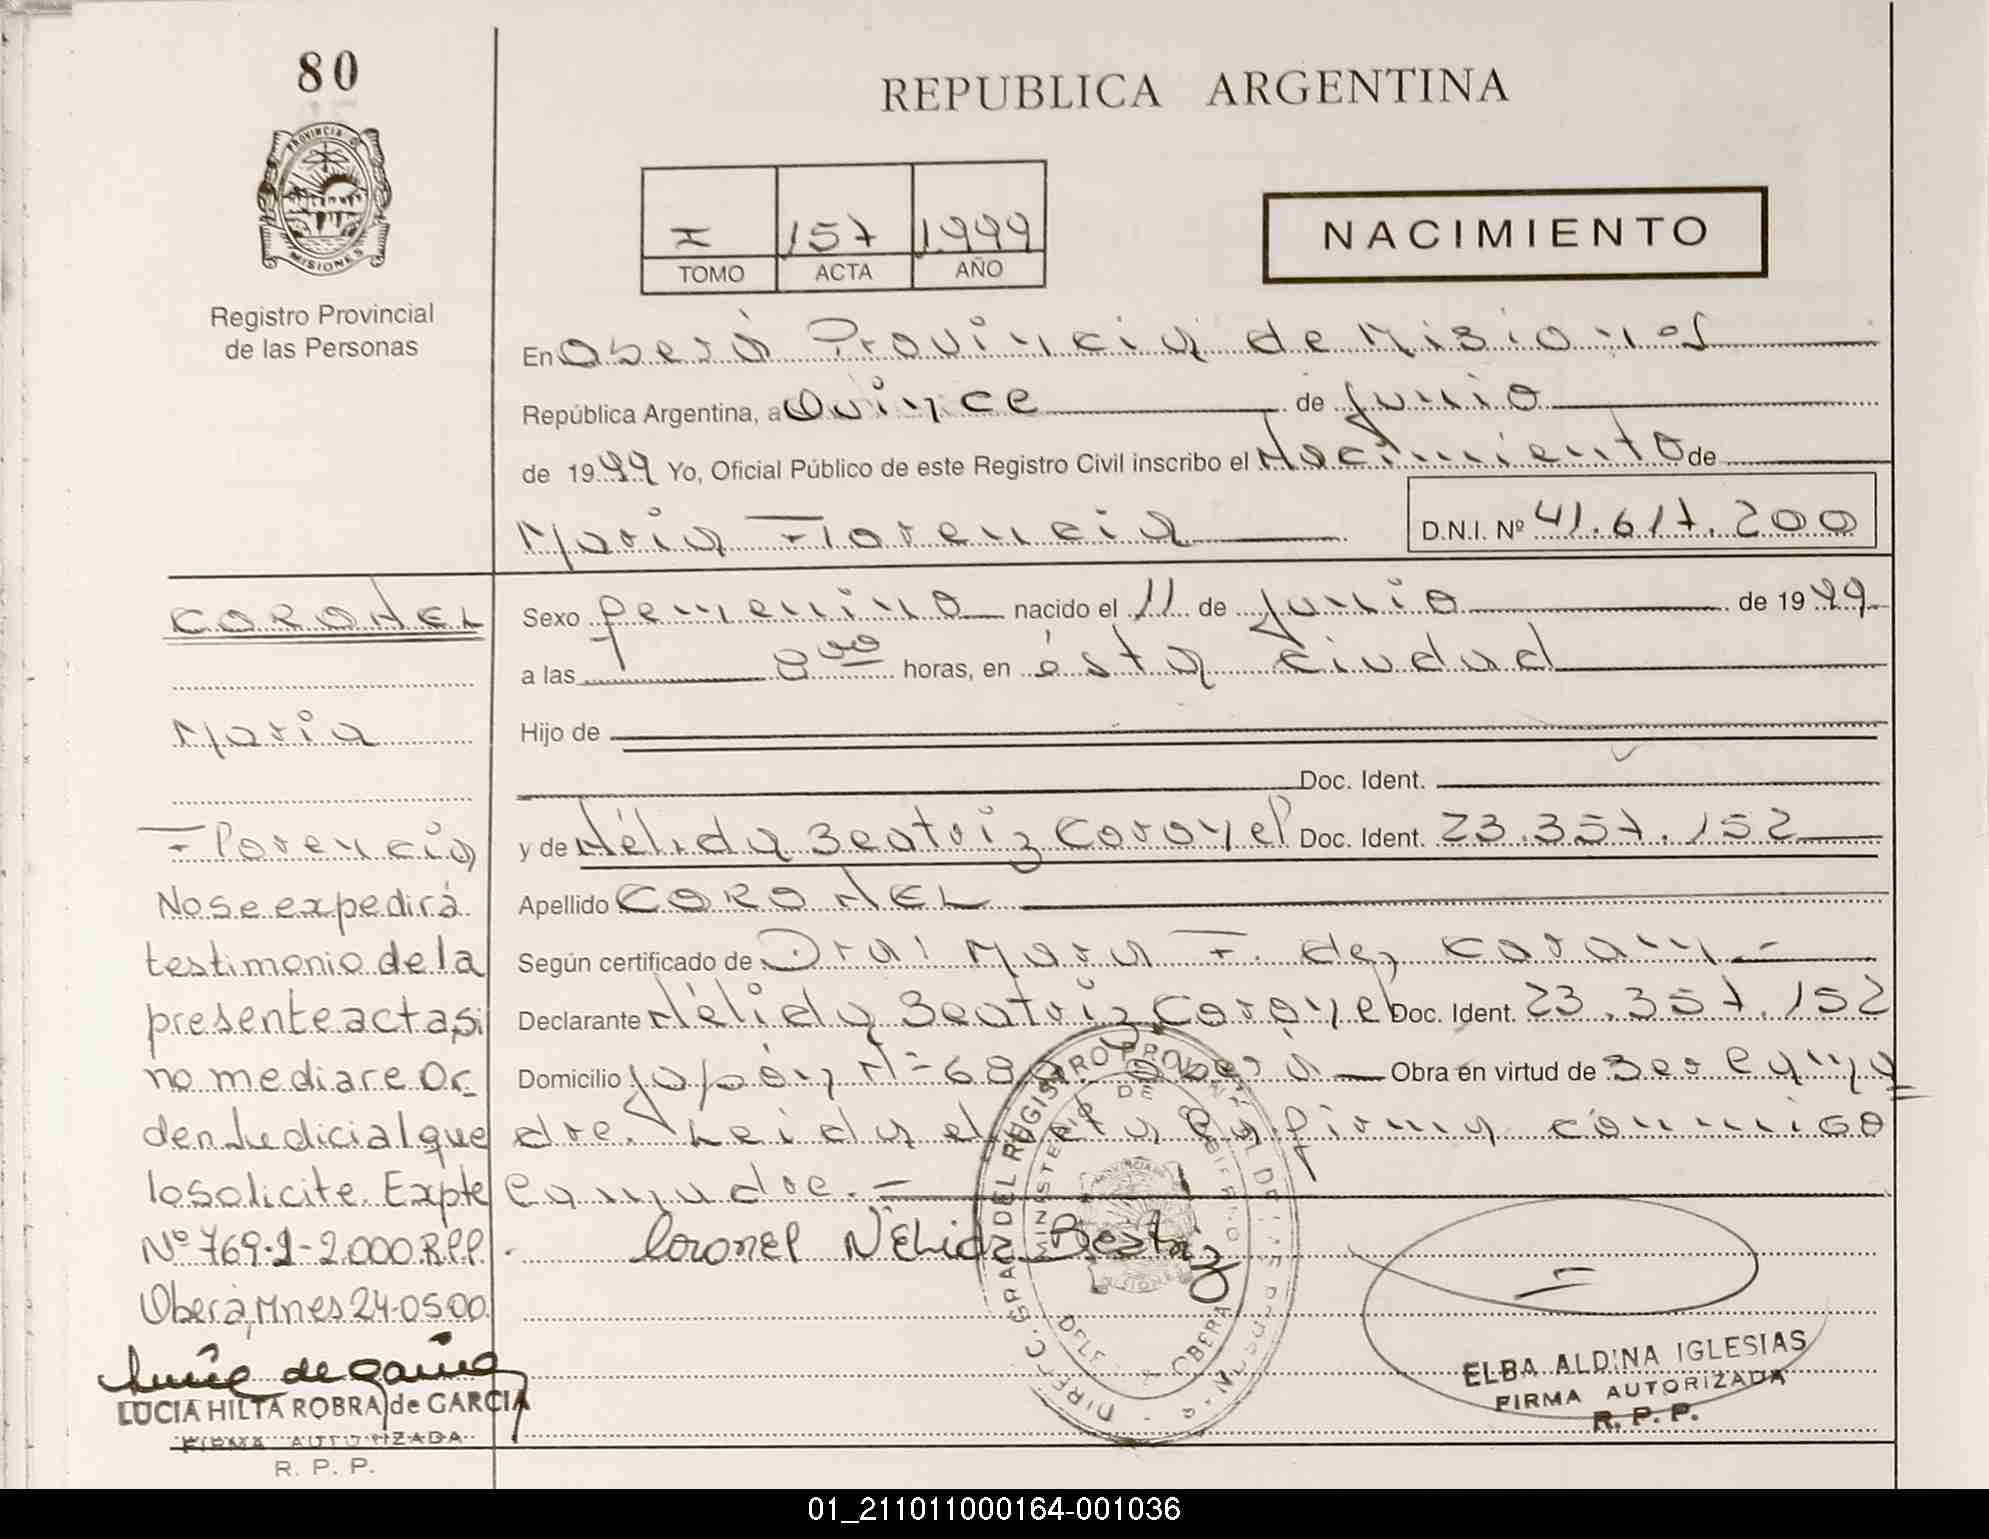 80
REPUBLICA ARGENTINA
PROVINCIA DE
MISIONES
Registro Provincial
de las Personas
I 157 1999
TOMO ACTA AÑO
NACIMIENTO
En Oberá Provincia de Misiones
República Argentina, a Quince de Junio
de 1999 Yo, Oficial Público de este Registro Civil inscribo el Nacimiento de
Maria Florencia D.N.I. Nº 41.617.200
CORONEL
Maria
Florencia
Sexo femenino nacido el 11 de Junio de 1999
a las 8 00 horas, en ésta ciudad
Hijo de
Doc. Ident.
y de Nélida Beatriz Coronel Doc. Ident. 23.357.152
Apellido CORONEL
Según certificado de Dra: Mara F. de
Declarante Nélida Beatriz Coronel Doc. Ident. 23.357.152
Domicilio Japón Nº 68 Oberá Obra en virtud de Ser
dre. Leida el Acta la firma conmigo
la madre.-
Coronel NéLida Beatriz
No se expedirá
testimonio de la
presente acta si
no mediare Or
den Judicial que
lo solicite. Expte
Nº 769-1-2.000 R.P.P.
Oberá, Mnes 24-05 00.
LUCIA HILTA ROBRA de GARCIA
FIRMA AUTORIZADA
R. P. P.
DIRECC. GRAL DEL REGISTRO PROVINCIAL DE LAS PERSONAS
MINISTERIO DE GOBIERNO
OBERA
ELBA ALDINA IGLESIAS
FIRMA AUTORIZADA
R. P. P.
01_211011000164-001036